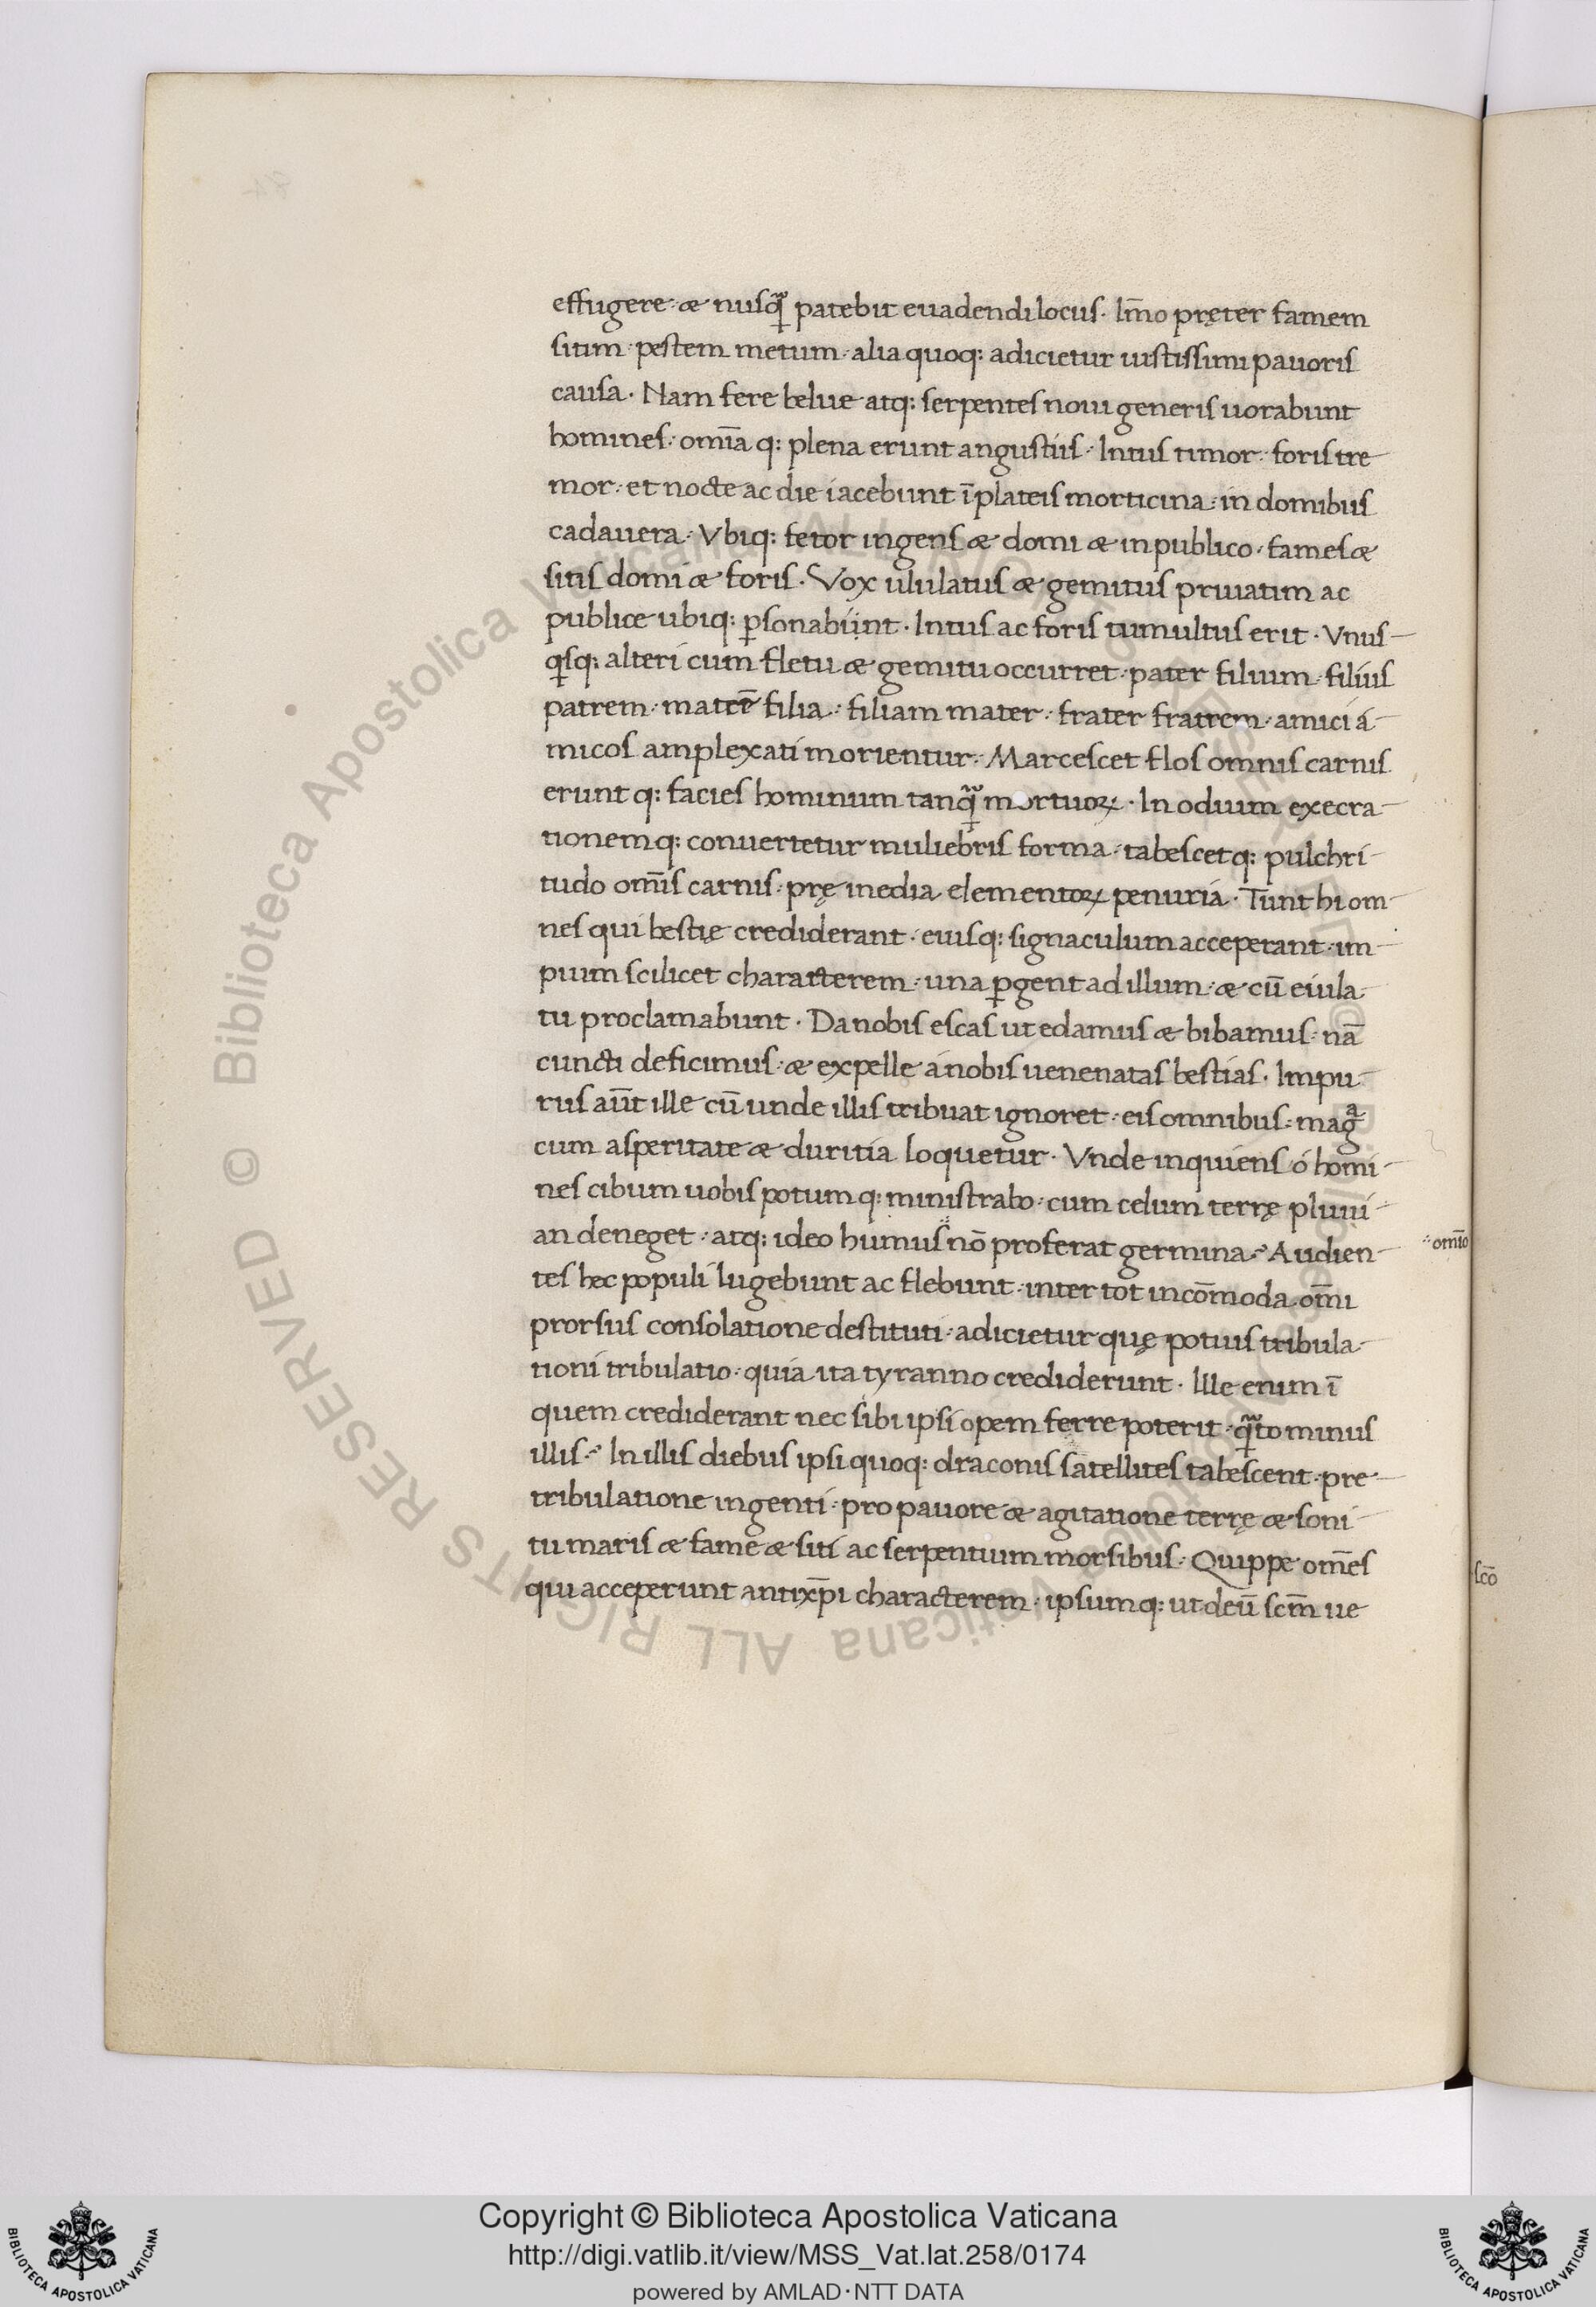 effugere · æ nusq̃ patebit euadendi locus · Im̄o pręter famem
sitim · pestem metum · alia quoq: adicietur iustissimi pauoris
causa · Nam fere belue atq: serpentes noui generis uorabunt
homines · om̄ia q: plena erunt angustiis · Intus timor · foris tre
mor · et nocte ac die iacebunt ī plateis morticina · in domibus
cadauera · Vbiq: fetor ingens æ domi æ in publico · fames æ
sitis domi æ foris · Vox ululatus æ gemitus priuatim ac
publice ubiq: ꝑsonabunt · Intus ac foris tumultus erit · Vnus-
qsq: alteri cum fletu æ gemitu occurret · pater filium · filius
patrem · matrē filia · filiam mater · frater fratrem · amici á-
micos amplexati morientur · Marcescet flos omnis carnis
erunt q: facies hominum tanq̃ mortuoꝝ · In odium execra-
tionemq: conuertetur muliebris forma · tabescetq: pulchri-
tudo om̄is carnis · prę inedia elementoꝝ penuriá · Tunt hi om-
nes qui bestię crediderant · eiusq: signaculum acceperant · im-
pium scilicet characterem · una ꝑgent ad illum · æ cū eiula-
tu proclamabunt · Da nobis escas ut edamus æ bibamus · nā
cuncti deficimus · æ expelle á nobis uenenatas bestias · Impu
rus aūt ille cū unde illis tribuat ignoret · eis omnibus · magᵃ
cum asperitate æ duritia loquetur · Vnde inquiens ó homi-
nes cibum uobis potum q: ministrabo · cum celum terrę pluui-
an deneget · atq: ideo humus nō proferat germina · Audien-
∴ om̄io
tes hec populi lugebunt ac flebunt · inter tot incōmoda om̄i
prorsus consolatione destituti · adicietur quę potius tribula-
tioni tribulatio · quia ita tyranno crediderunt · Ille enim ī
quem crediderant nec sibi ipsi opem ferre poterit · q̃to minus
illis · In illis diebus ipsi quoq: draconis satellites tabescent · pre-
tribulatione ingenti · pro pauore æ agitatione terrę æ soni-
tu maris æ fame æ siti ac serpentium morsibus · Quippe om̄es
scō
qui acceperunt antixp̄i characterem · ipsumq: ut deū scm̄ ue
Copyright © Biblioteca Apostolica Vaticana
http://digi.vatlib.it/view/MSS_Vat.lat.258/0174
powered by AMLAD·NTT DATA
BIBLIOTECA APOSTOLICA VATICANA
BIBLIOTECA APOSTOLICA VATICANA
© Biblioteca Apostolica Vaticana ALL RIGHTS RESERVED
© Biblioteca Apostolica Vaticana ALL RIGHTS RESERVED